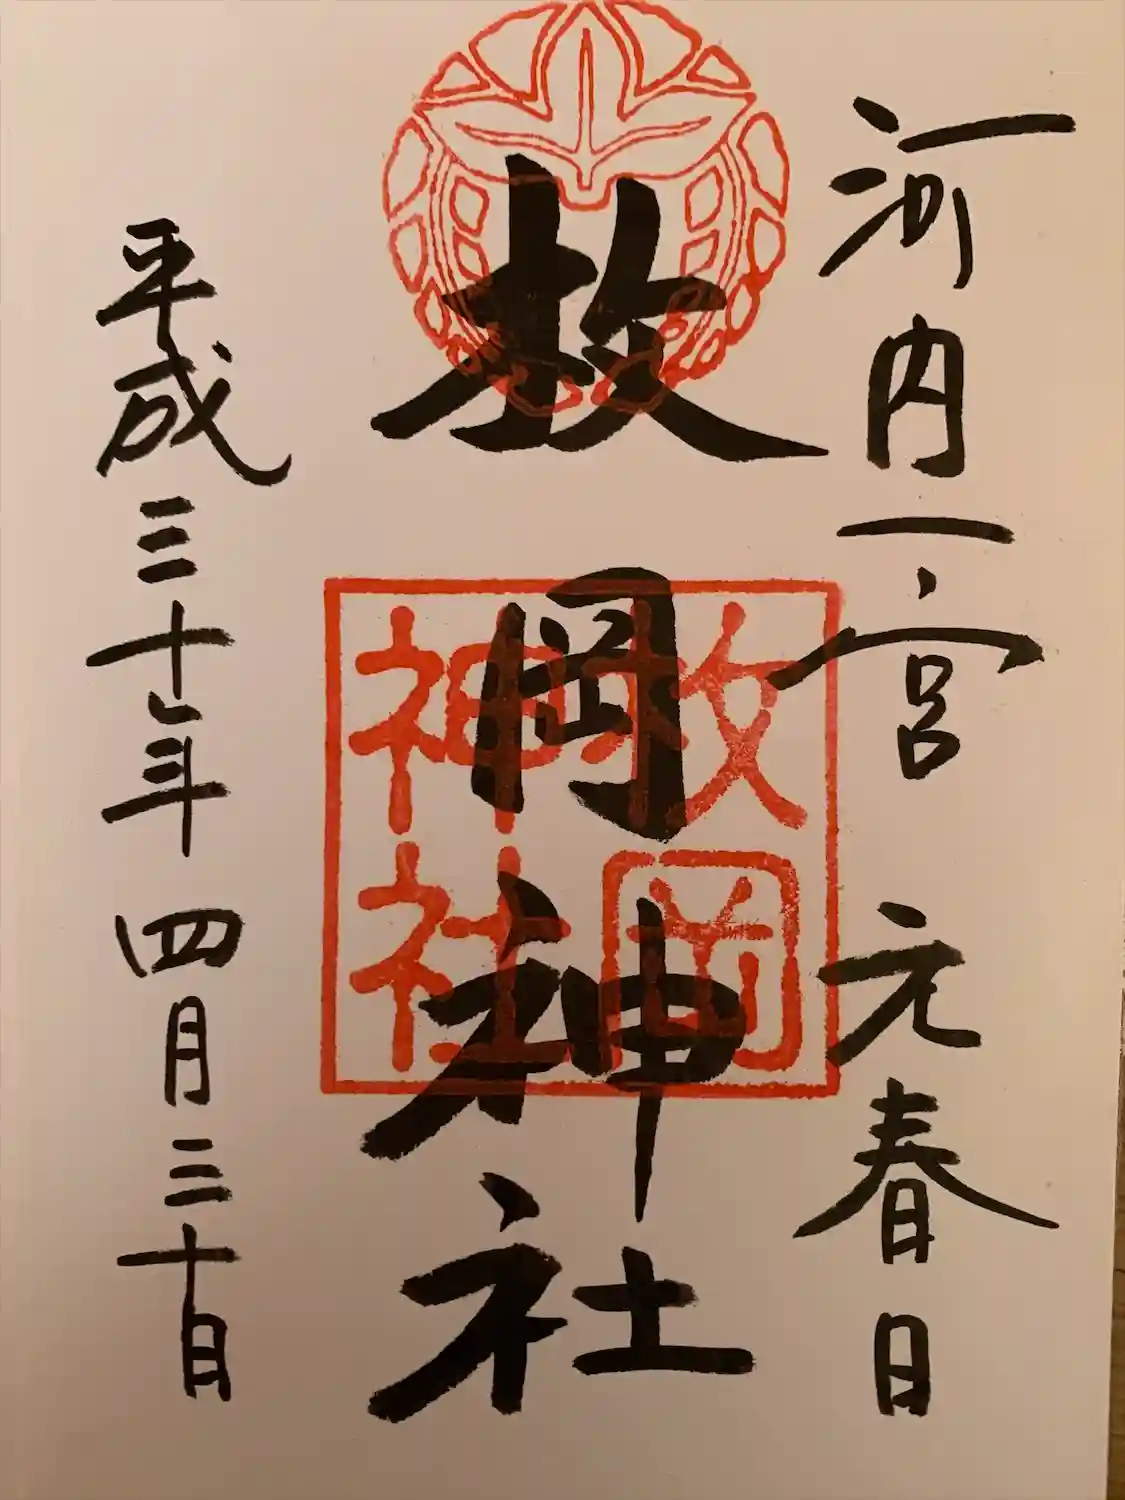 河内一宮　元春日
枚岡神社
枚岡神社
平成三十年四月三十日